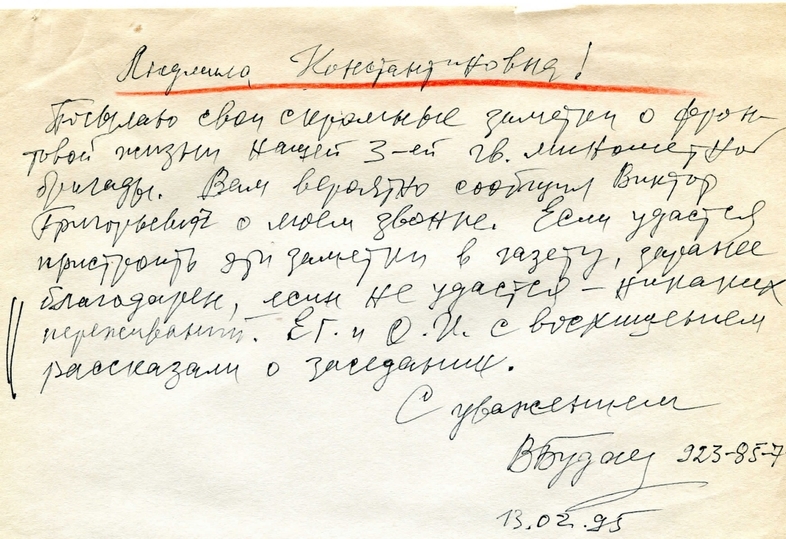 Людмила Константиновна!
Посылаю свои скромные заметки о фрон-
товой жизни нашей 3-ей гв. минометной
бригады. Вам вероятно сообщил Виктор
Григорьевич о моем звонке. Если удастся
пристроить эти заметки в газету, заранее
благодарен, если не удастся – никаких
переживаний. Е.Г. и О.И. с восхищением
рассказали о заседаниях.
С уважением
923-85-7
13.02.95